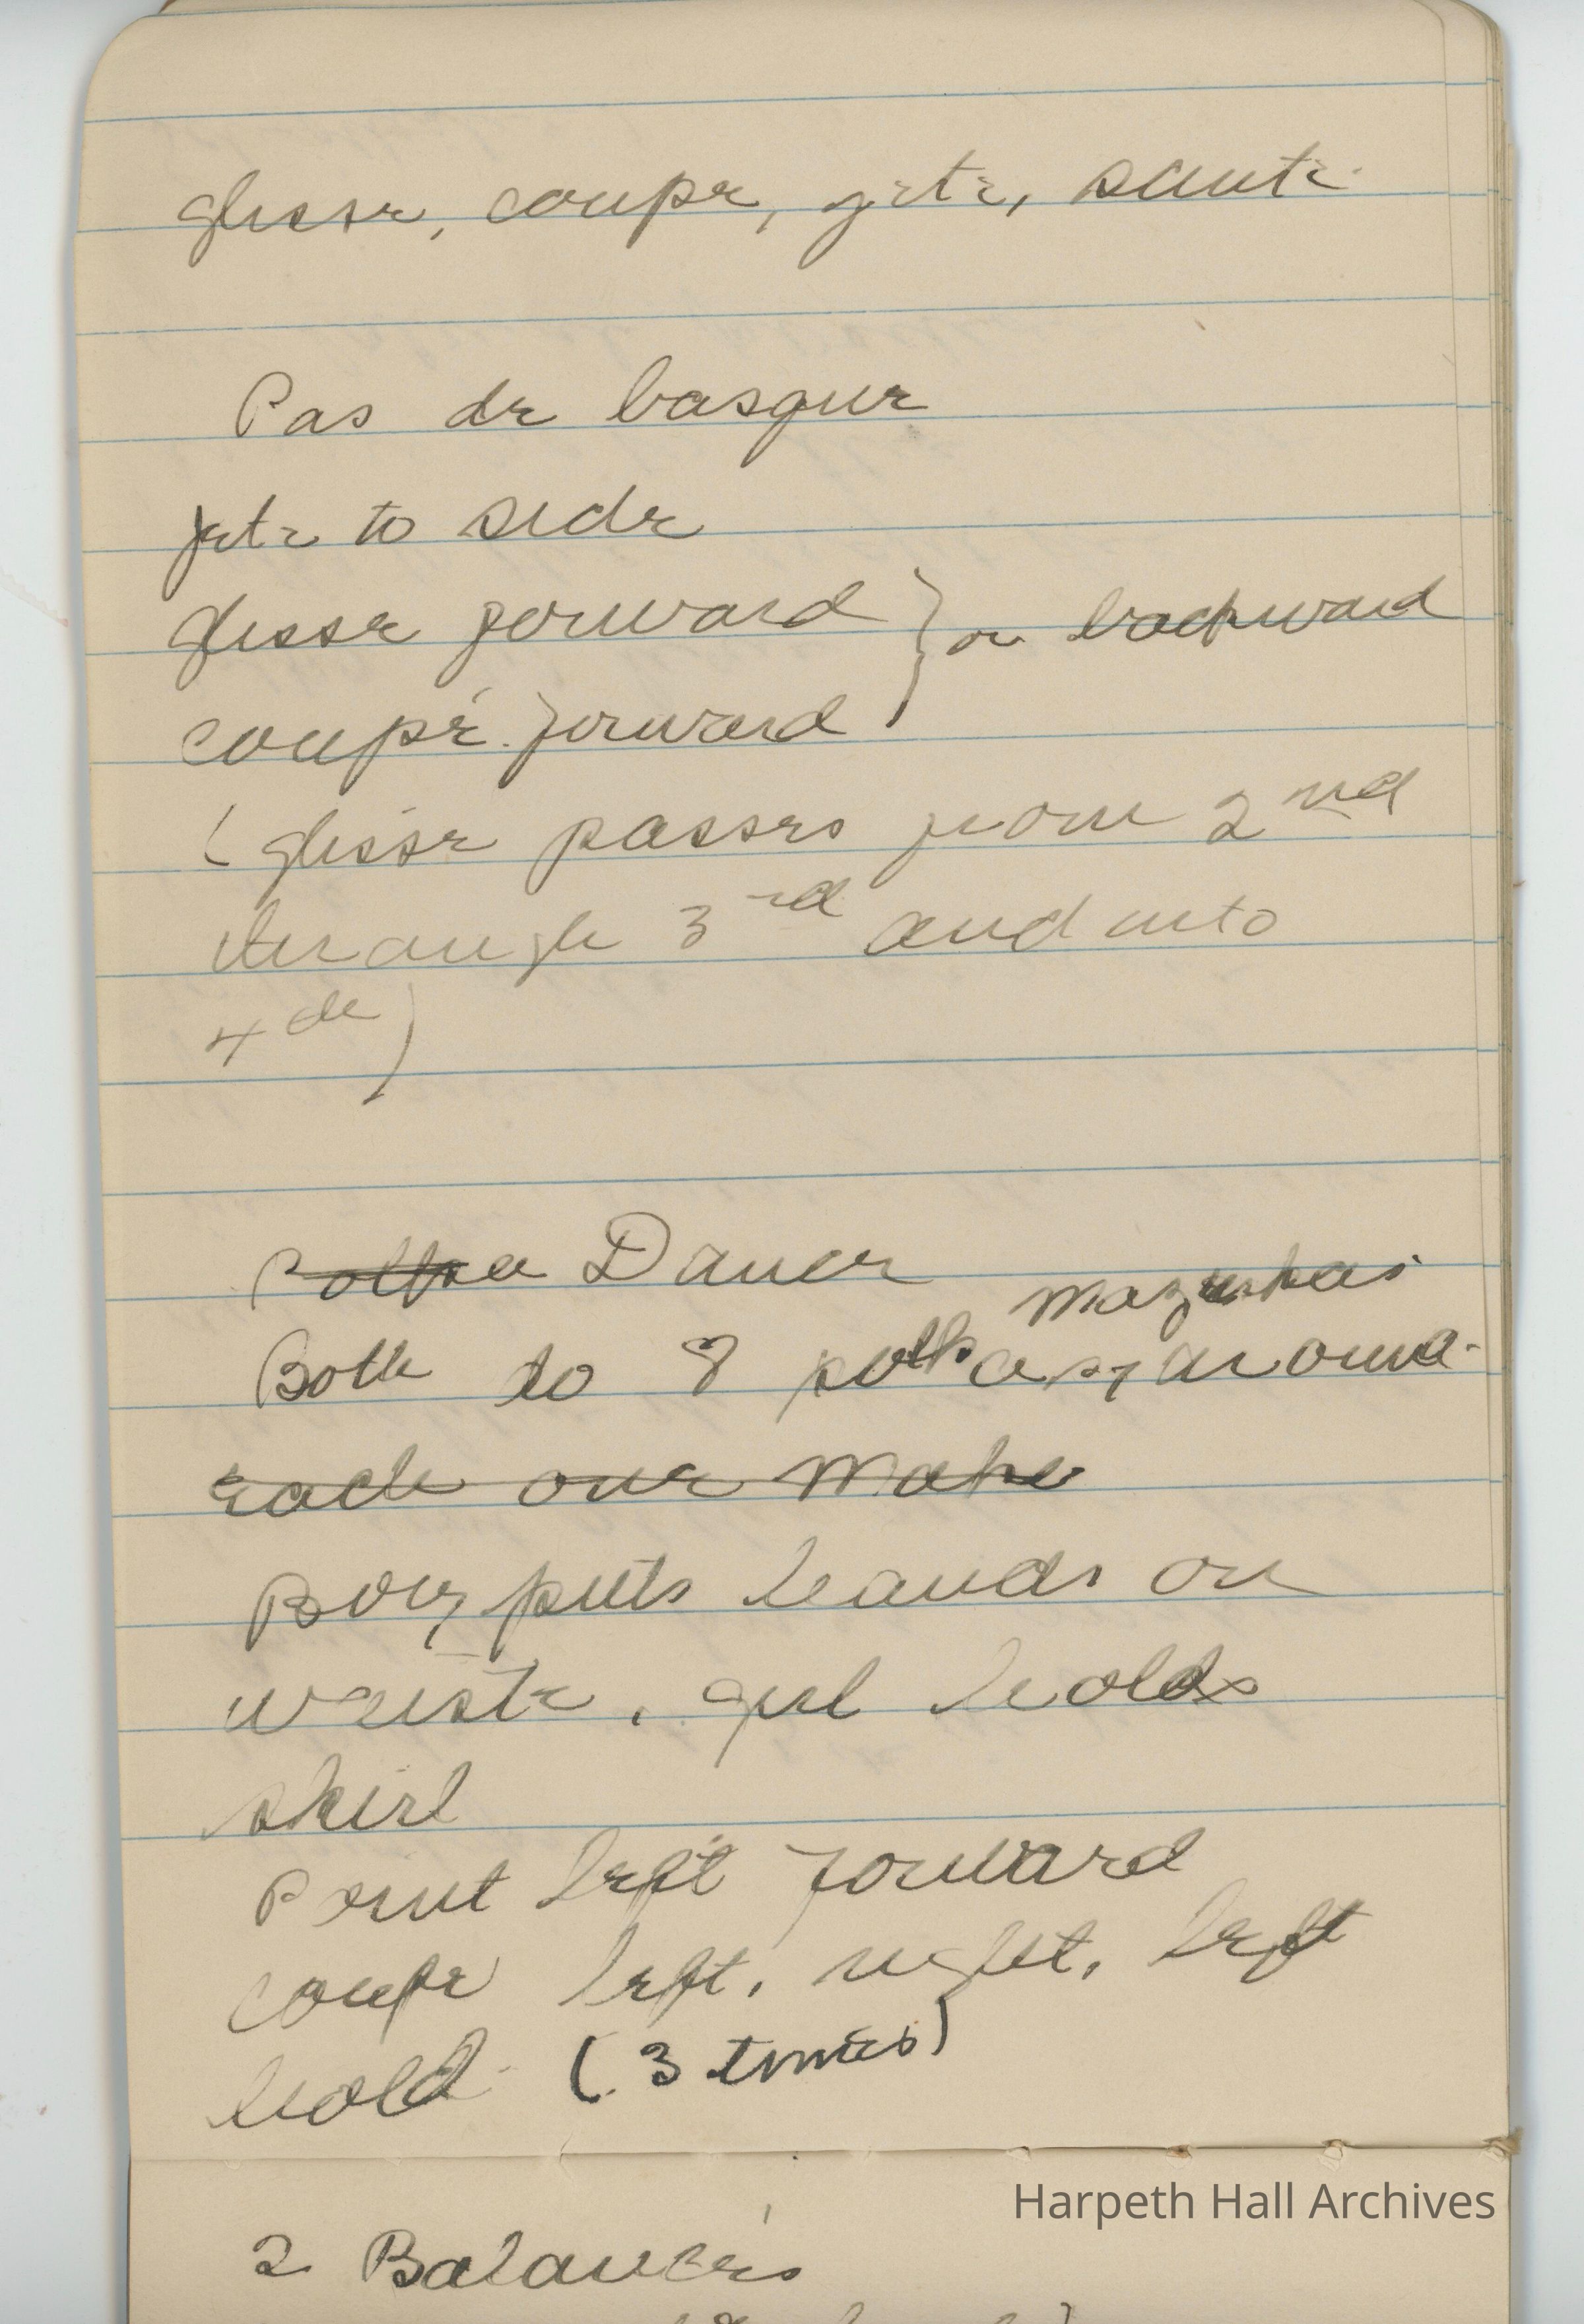 glisse, coupe, jete, saute.
Pas de basque
jete to side
glisse forward } or backward
coupé forward
( glisse passes from 2nd
through 3rd and into
4th )
Polka Dance
mazurkas
Both do 8 polkas around.
each one make
Boy puts hands on
waist, girl holds
skirt
Point left forward
coupe left, right, left
hold (3 times)
Harpeth Hall Archives
2 Balancés